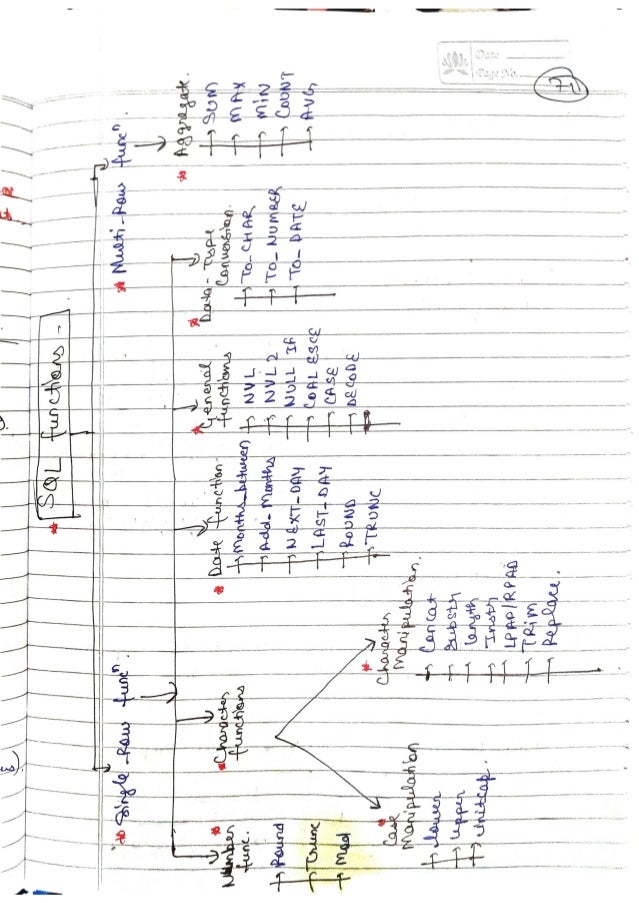 Date
Page No.
71
SQL functions.
Single-Row funcⁿ.
Multi-Row funcⁿ.
Number
func.
Round
Trunc
Mod
Character
functions
Case
Manipulation
lower
upper
initcap.
Character
Manipulation.
Concat
Substr
length
Instr
LPAD/RPAD
TRIM
Replace.
Date function.
Months_between
Add_Months
NEXT_DAY
LAST_DAY
ROUND
TRUNC
General
functions
NVL
NVL 2
NULL IF
COALESCE
CASE
DECODE
Data-Type
Conversion.
TO_CHAR
TO_NUMBER
TO_DATE
Aggregate.
SUM
MAX
MIN
COUNT
AVG